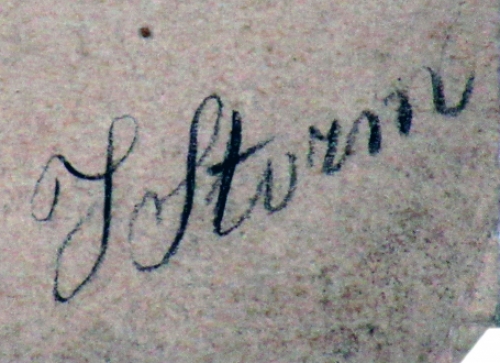 J Sturm